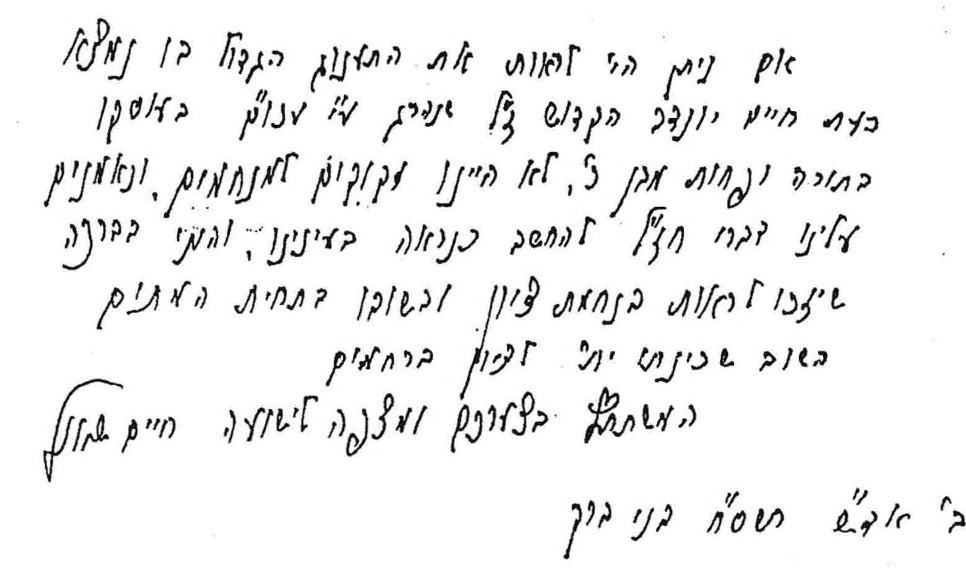 אם ניתן הי' לראות את התענוג הגדול בו נמצא
כעת חיים יונדב הקדוש ז"ל שנהרג ע"י עכו"ם בעוסקו
בתורה ונפחות מבן כ', לא היינו זקוקים למנחמים, ונאמנים
עלינו דברי חז"ל להחשב כנראה בעינינו, והנני בברכה
שיזכו לראות בנחמת ציון ובשובו בתחית המתים
בשוב שכינתו ית' לציון ברחמים
המשתתף בצערכם ומצפה לישועה חיים
ב' אד"ש תשס"ח בני ברק